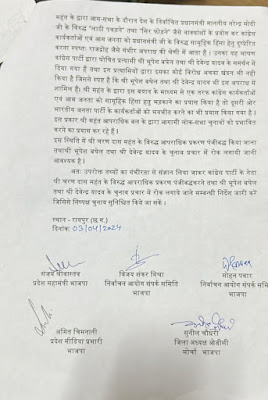 महंत के द्वारा आम-सभा के दौरान देश के निर्वाचित प्रधानमंत्री माननीय नरेन्द्र मोदी
जी के विरूद्ध "लाठी पकड़ने" तथा "सिर फोड़ने" जैसे वाक्यांशों का प्रयोग कर कांग्रेस
कार्यकर्ताओं एवं आम जनता को प्रधानमंत्री जी के विरूद्ध सामूहिक हिंसा हेतु दुष्प्रेरित
करना स्पष्टतः राजद्रोह जैसे गंभीर अपराध की श्रेणी में आता है। उनका यह भाषण
कांग्रेस पार्टी द्वारा घोषित प्रत्याशी श्री भूपेश बघेल तथा श्री देवेन्द्र यादव के समर्थन में
दिया गया है तथा इन प्रत्याशियों द्वारा इसका कोई विरोध अथवा खंडन भी नहीं
किया है जिससे स्पष्ट है कि श्री भूपेश बघेल तथा श्री देवेन्द्र यादव भी इस अपराध में
शामिल हैं। श्री महंत के द्वारा इस बयान के माध्यम से एक तरफ कांग्रेस कार्यकर्ताओं
एवं आम जनता को सामूहिक हिंसा हेतु भड़काने का प्रयास किया है तो दूसरी ओर
भारतीय जनता पार्टी के कार्यकर्ताओं को भयभीत करने का भी प्रयास किया गया है।
इस प्रकार श्री महंत आपराधिक बल के द्वारा आगामी लोक-सभा चुनावों को प्रभावित
करने का प्रयास कर रहे हैं।
इस स्थिति में श्री चरण दास महंत के विरूद्ध आपराधिक प्रकरण पंजीबद्ध किया जाना
तथा श्री भूपेश बघेल तथा श्री देवेन्द्र यादव के चुनाव प्रचार में रोक लगायी जानी
आवश्यक है।
अतः उपरोक्त तथ्यों का गंभीरता से संज्ञान लिया जाकर कांग्रेस पार्टी के नेता
श्री चरण दास महंत के विरूद्ध आपराधिक प्रकरण पंजीबद्ध करने तथा श्री भूपेश बघेल
तथा श्री देवेन्द्र यादव के चुनाव प्रचार में रोक लगाये जाने सम्बन्धी निर्देश जारी करें
जिससे निष्पक्ष चुनाव सुनिश्चित किये जा सकें।
स्थान - रायपुर (छ.ग.)
दिनांक: 03/04/2024
संजय श्रीवास्तव
प्रदेश महामंत्री भाजपा
विजय शंकर मिश्रा
निर्वाचन आयोग संपर्क समिति
भाजपा
मोहन पवार
निर्वाचन आयोग संपर्क समिति
भाजपा
अमित चिमनानी
प्रदेश मीडिया प्रभारी
भाजपा
सुनील चौधरी
जिला अध्यक्ष ओबीसी
मोर्चा भाजपा